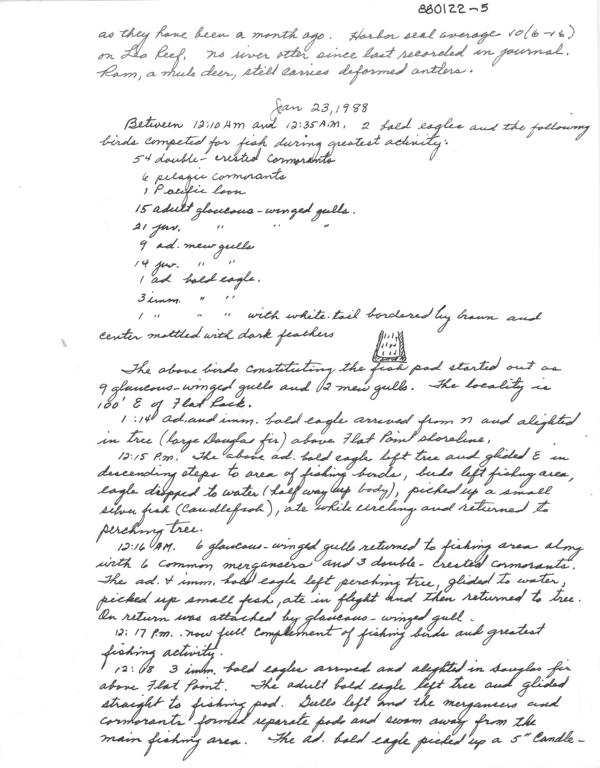 880122-5
as they have been a month ago. Harbor seal average 10 (6-18)
on Leo Reef. No river otter since last recorded in journal.
Ram, a mule deer, still carries deformed antlers.
Jan 23, 1988
Between 12:10 AM and 12:35 A.M. 2 bald eagles and the following
birds competed for fish during greatest activity:
54 double-crested cormorants
6 pelagic cormorants
1 Pacific loon
15 adult glaucous-winged gulls.
21 juv. " " "
9 ad. mew gulls
14 juv. " "
1 ad bald eagle.
3 imm. " "
1 " " " with white tail bordered by brown and
center mottled with dark feathers
The above birds constituting the fish pod started out as
9 glaucous-winged gulls and 2 mew gulls. The locality is
100' E of Flat Rock.
1:14 ad. and imm. bald eagle arrived from N and alighted
in tree (large Douglas fir) above Flat Point shoreline,
12:15 P.m. The above ad. bald eagle left tree and glided E in
descending steps to area of fishing birds, birds left fishing area,
eagle dropped to water (half way up body), picked up a small
silver fish (Candlefish), ate while circling and returned to
perching tree.
12:16 AM. 6 glaucous-winged gulls returned to fishing area along
with 6 common mergansers and 3 double-crested cormorants.
The ad. & imm. bald eagle left perching tree, glided to water,
picked up small fish, ate in flight and then returned to tree.
On return was attached by glaucous-winged gull.
12:17 P.m. now full complement of fishing birds and greatest
fishing activity.
12:18 3 imm. bald eagles arrived and alighted in Douglas fir
above Flat Point. The adult bald eagle left tree and glided
straight to fishing pod. Gulls left and the mergansers and
cormorants formed separate pods and swam away from the
main fishing area. The ad. bald eagle picked up a 5" Candle-